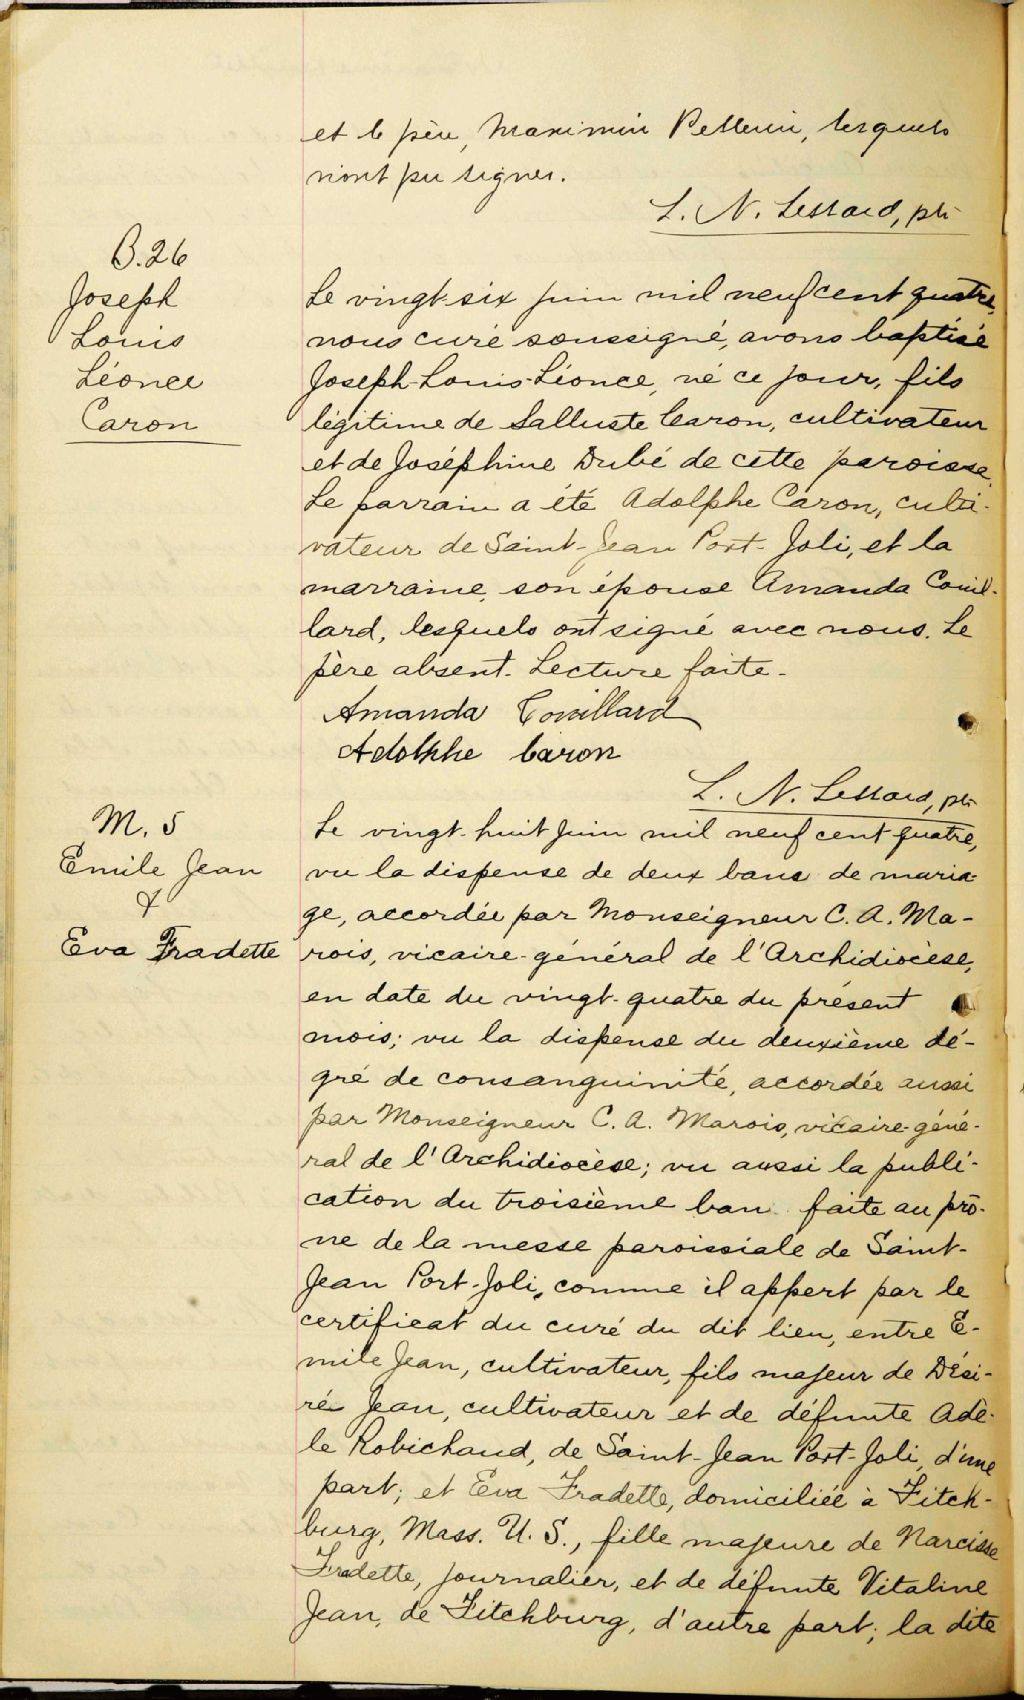 et le père, Maximin Pellerin, lesquels
n'ont pu signer.
L. N. Lessard, ptr
B. 26
Joseph
Louis
Léonce
Caron
Le vingt-six juin mil neuf cent quatre,
nous curé soussigné, avons baptisé
Joseph-Louis-Léonce, né ce jour, fils
légitime de Salluste Caron, cultivateur
et de Joséphine Dubé de cette paroisse.
Le parrain a été Adolphe Caron, culti-
vateur de Saint-Jean Port-Joli, et la
marraine, son épouse Amanda Couil-
lard, lesquels ont signé avec nous. Le
père absent. Lecture faite.
Amanda Couillard
Adolphe Caron
L. N. Lessard, ptr
M. 5
Emile Jean
&
Eva Fradette
Le vingt-huit juin mil neuf cent quatre,
vu la dispense de deux bans de maria-
ge, accordée par Monseigneur C. A. Ma-
rois, vicaire-général de l'Archidiocèse,
en date du vingt-quatre du présent
mois; vu la dispense du deuxième dé-
gré de consanguinité, accordée aussi
par Monseigneur C. A. Marois, vicaire-géné-
ral de l'Archidiocèse; vu aussi la publi-
cation du troisième ban faite au prô-
ne de la messe paroissiale de Saint-
Jean Port-Joli, comme il appert par le
certificat du curé du dit lieu, entre E-
mile Jean, cultivateur, fils majeur de Dési-
ré Jean, cultivateur et de défunte Adè-
le Robichaud, de Saint-Jean Port-Joli, d'une
part; et Eva Fradette, domiciliée à Fitch-
burg, Mass. U. S., fille majeure de Narcisse
Fradette, journalier, et de défunte Vitaline
Jean, de Fitchburg, d'autre part; la dite